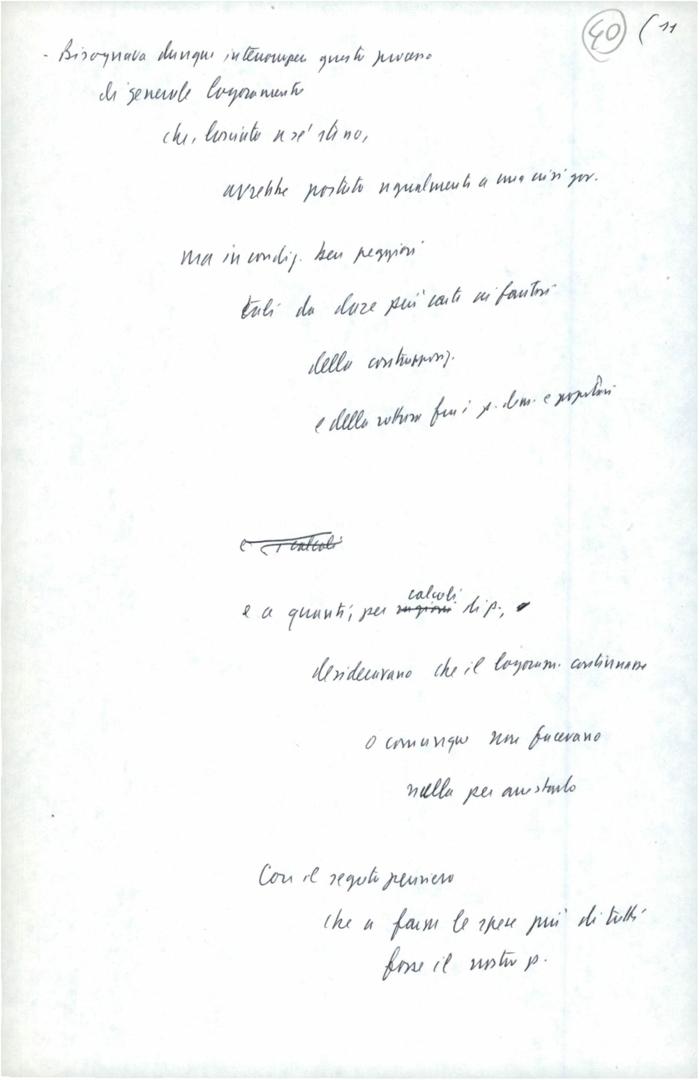 40 ( 11
- Bisognava dunque interrompere questo processo
di generale logoramento
che, lasciato a se' stesso,
avrebbe portato ugualmente a una crisi gov.
ma in condiz. ben peggiori
tali da dare più carte ai fautori
della contrappos.
e della rottura fra i p. dem. e popolari
e i calcoli
e a quanti, per ragioni calcoli di p.,
desideravano che il logoram. continuasse
o comunque non facevano
nulla per arrestarlo
Con il segreto pensiero
che a farne le spese più di tutti
fosse il nostro p.